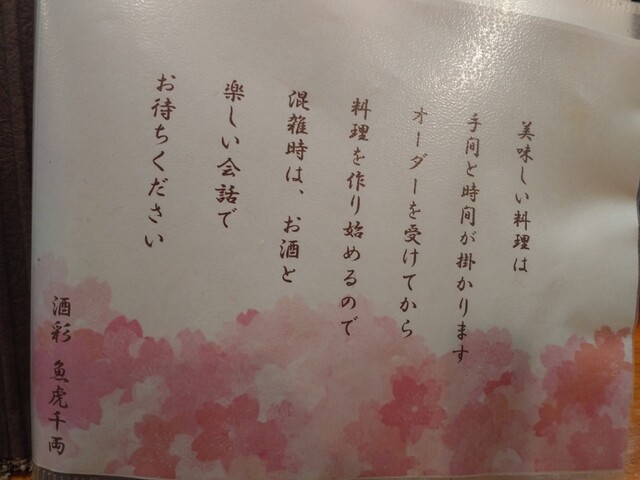 美味しい料理は
手間と時間が掛かります
オーダーを受けてから
料理を作り始めるので
混雑時は、お酒と
楽しい会話で
お待ちください
酒彩 魚虎千両